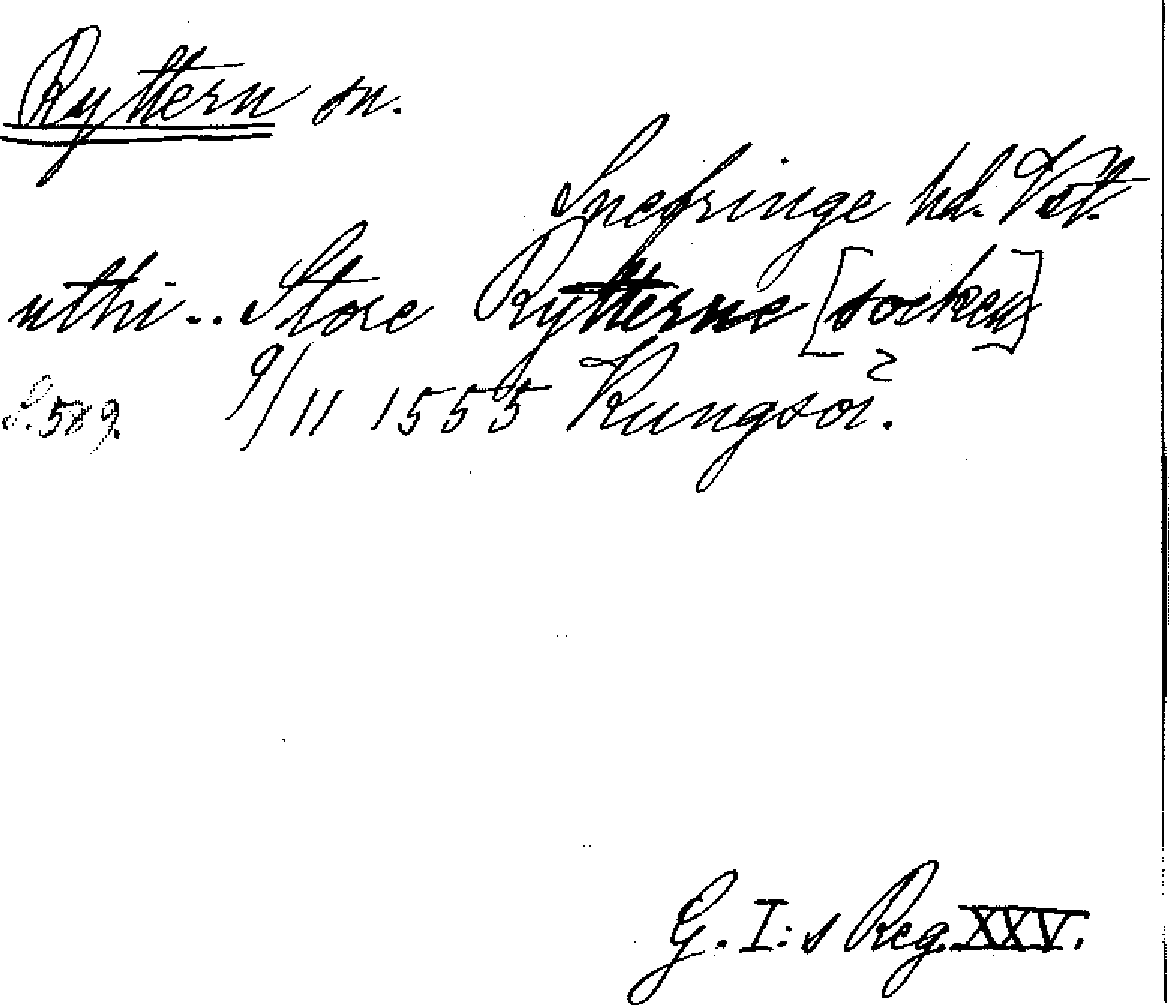 Ryttern sn.
Snefringe hd. Vstm.
uthi .. Store Rytterne [socken]
S. 589. 9/11 1555 Kungsör.
G. I:s Reg. XXV.